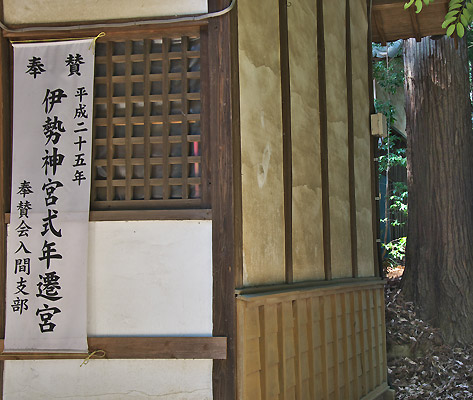 奉賛
平成二十五年
伊勢神宮式年遷宮
奉賛会入間支部